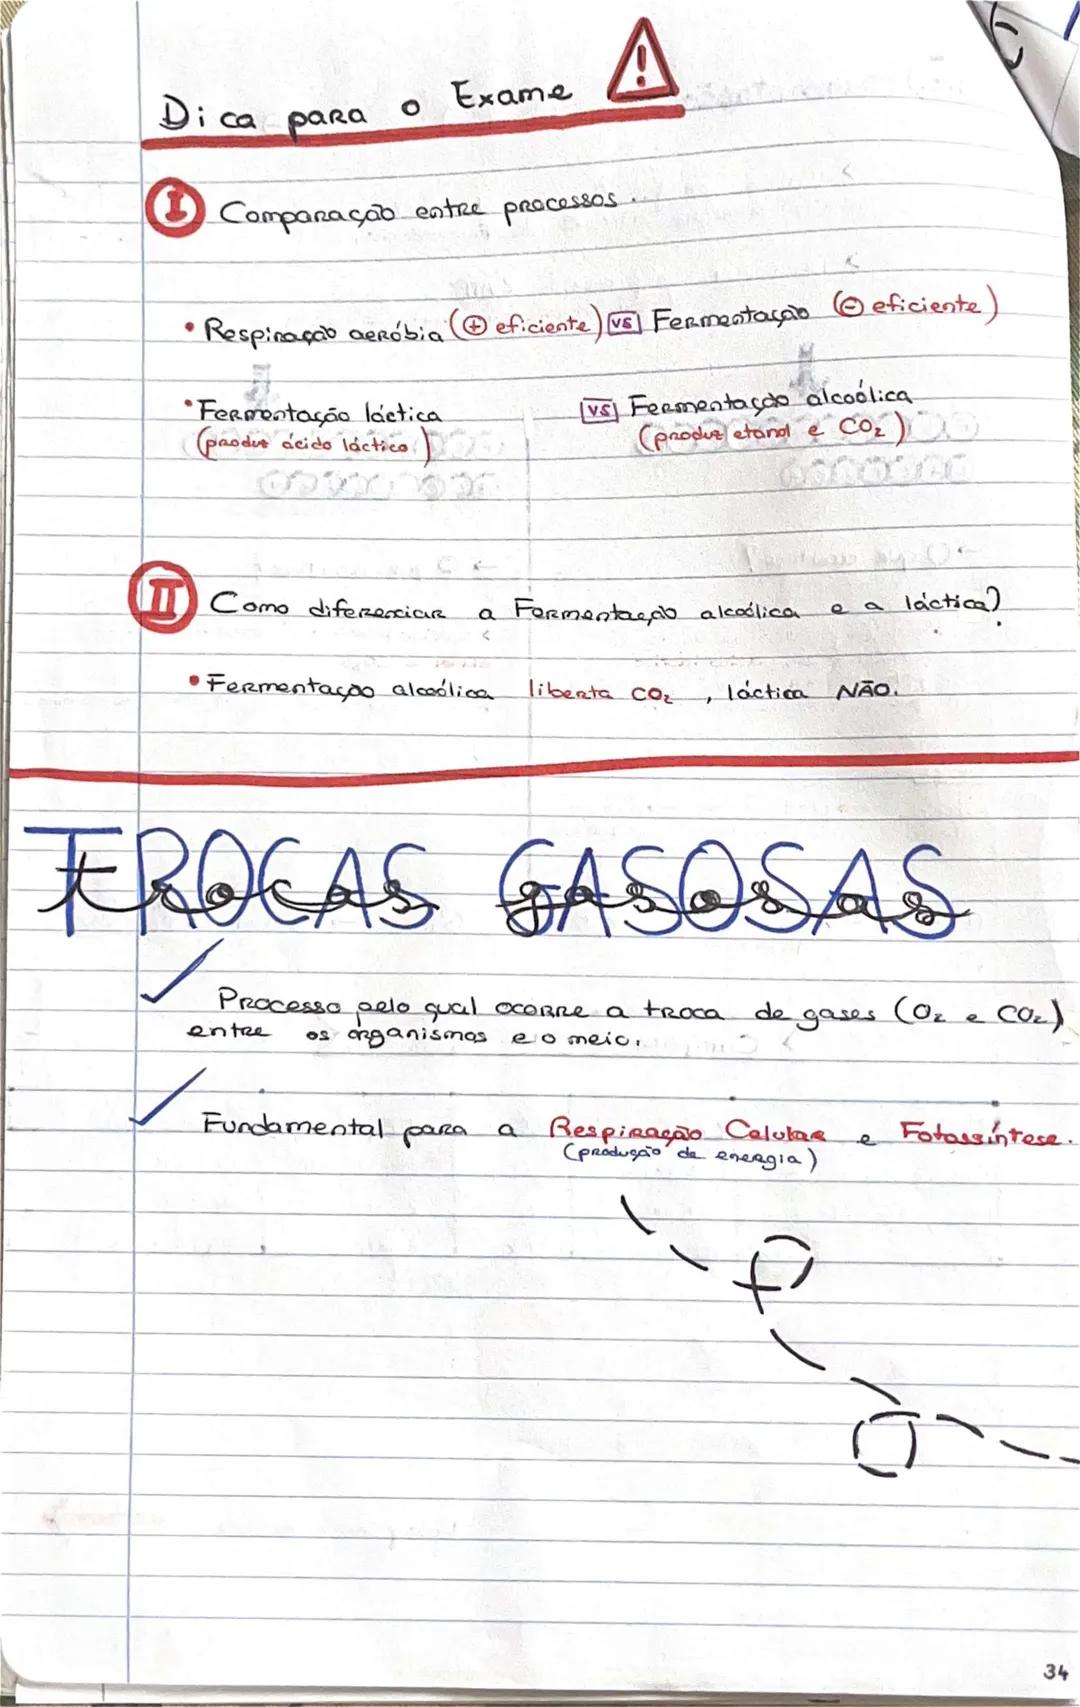 Dica para o Exame
I Comparação entre processos.
• Respiração aeróbia (+ eficiente) vs Fermentação (- eficiente)
• Fermentação láctica vs Fermentação alcoólica
(produz ácido láctico) (produz etanol e CO₂)
II Como diferenciar a Fermentação alcoólica e a láctica?
• Fermentação alcoólica liberta CO₂, láctica NÃO.
TROCAS GASOSAS
trocas gasosas
Processo pelo qual ocorre a troca de gases (O₂ e CO₂)
entre os organismos e o meio.
Fundamental para a Respiração Celular e Fotossíntese.
(produção de energia)
34